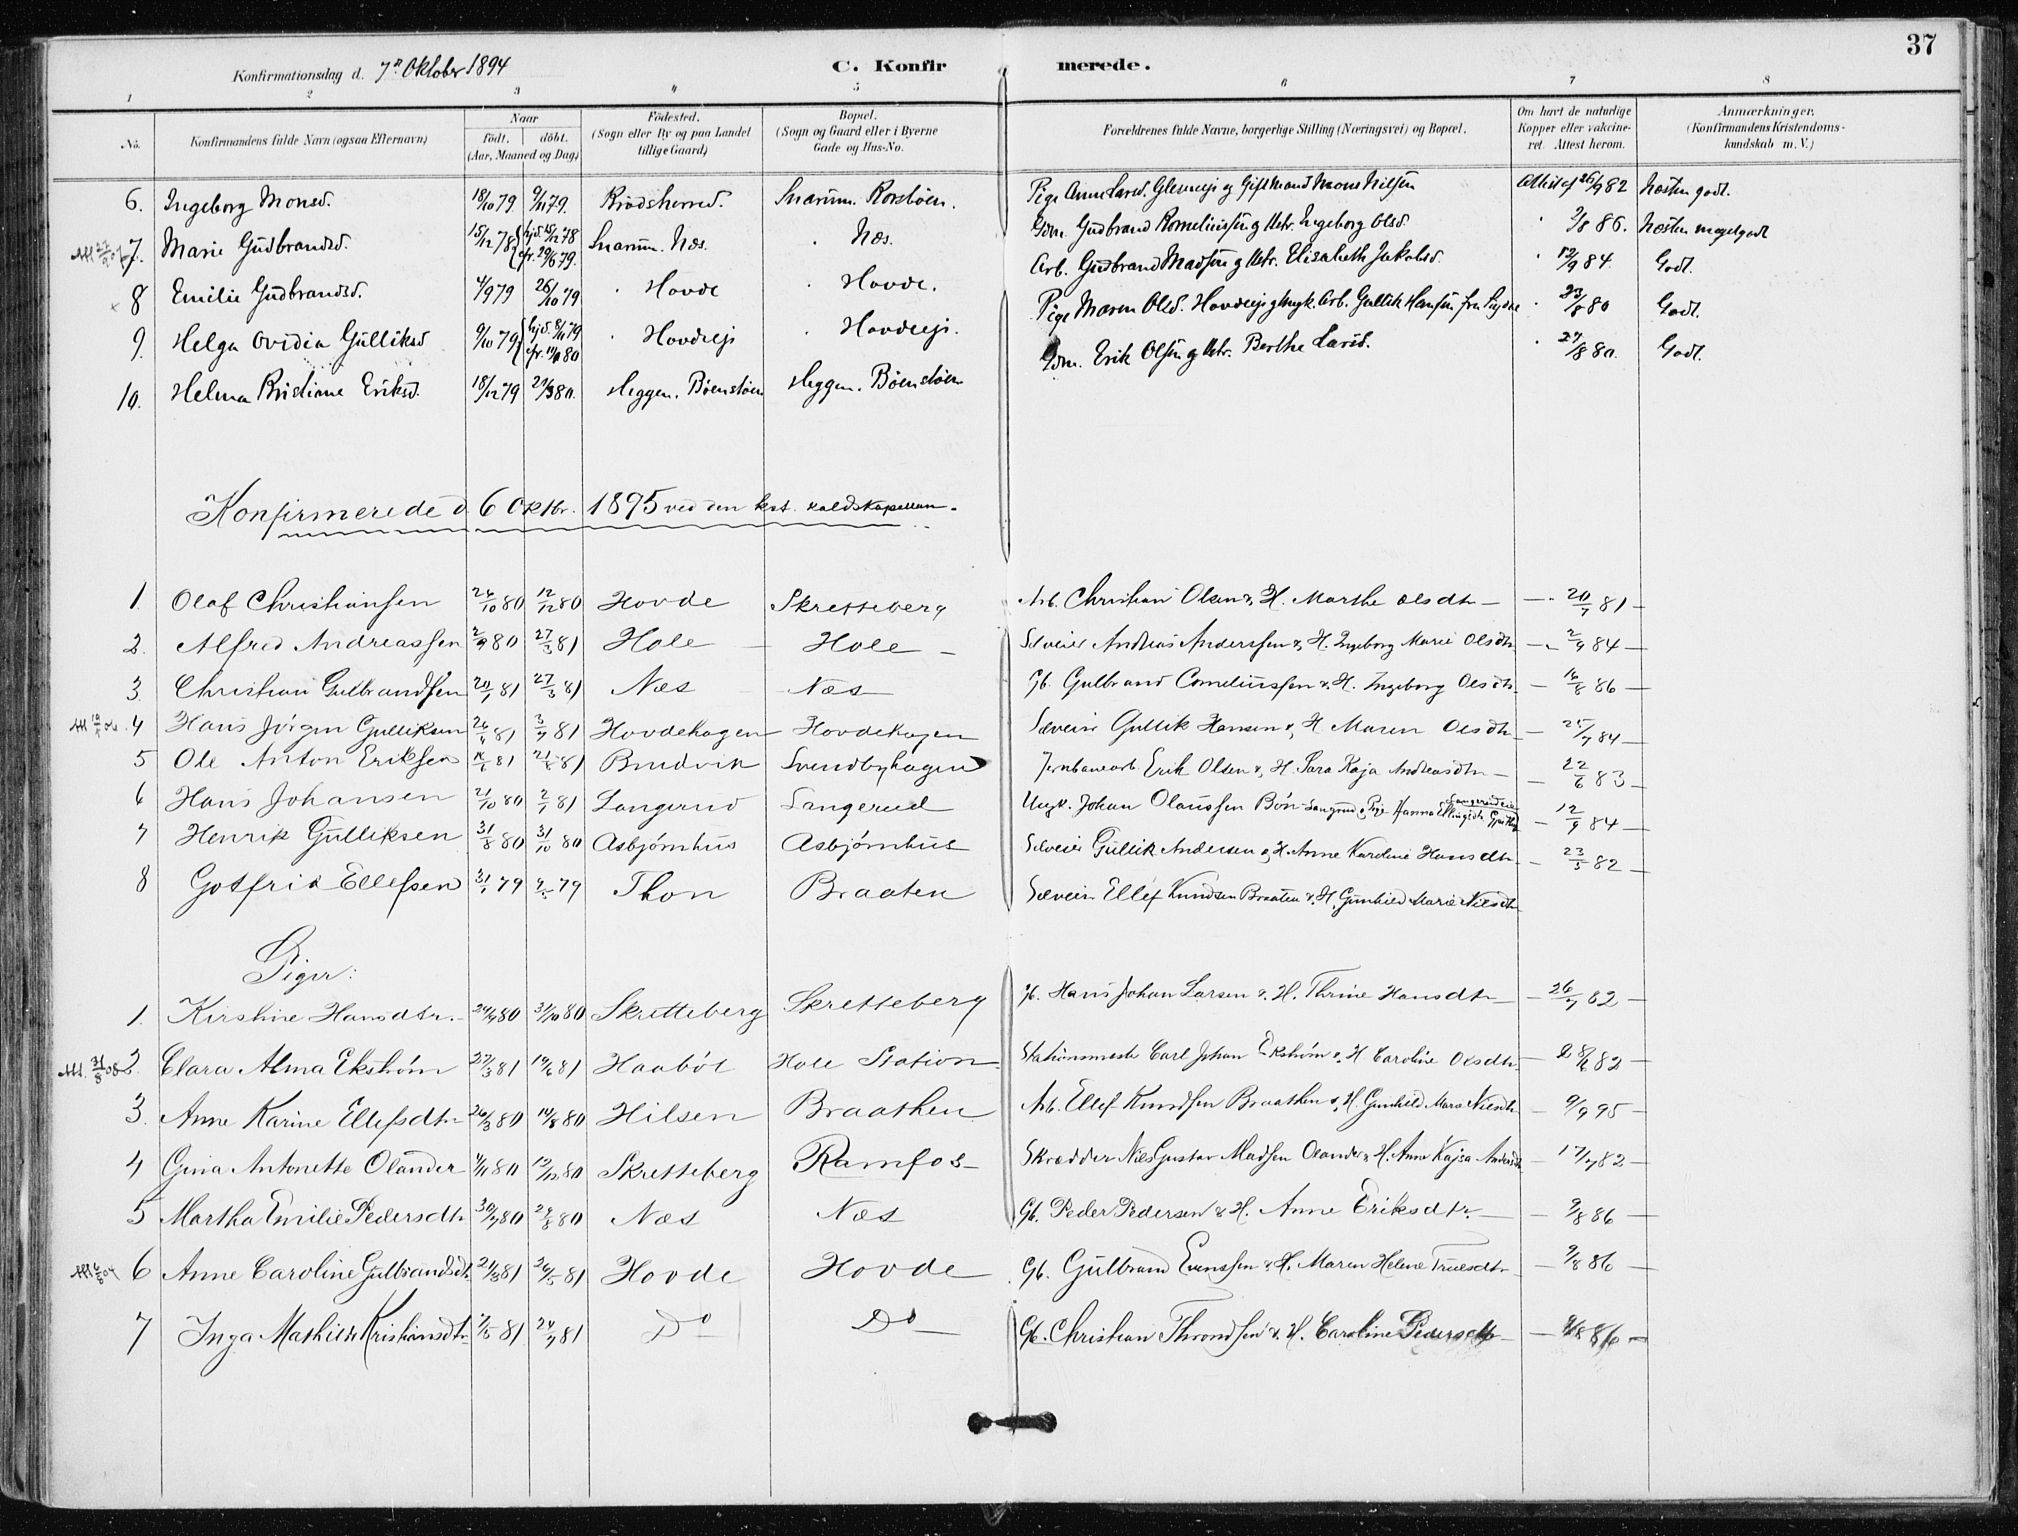 37
Konfirmationsdag d. 7de Oktober 1894 C. Konfirmerede.
1 2 3 4 5 6 7 8
No. Konfirmandens fulde Navn (ogsaa Efternavn) Naar födt. döbt. (Aar, Maaned og Dag) Födested. (Sogn eller By og paa Landet tillige Gaard) Bopæl. (Sogn og Gaard eller i Byerne Gade og Hus-No. Forældrenes fulde Navne, borgerlige Stilling (Næringsvei) og Bopæl. Om havt de naturlige Kopper eller vakcineret. Attest herom. Anmærkninger. (Konfirmandens Kristendomskundskab m. V.)
6. Ingeborg Monsd. 18/10 79 9/11 79. Krødsherred. Snarum. Pige Anne Larsd. Glesneeje og Gift Mand Mons Nilsen Attest af 26/9 82 Næsten godt.
7. Marie Gudbrandsd. 15/12 78 Snarum. Næs. Næs. Gdm. Gudbrand Korneliussen og Ingeborg Olsd. 9/8 86. Næsten meget godt
8 Emilie Gudbrandsd. 4/9 79 26/10 79 Hovde Hovde. Arb. Gudbrand Madsen og Elisabeth Jakobsd. 12/9 84. Godt.
9. Helga Ovidia Gulliksd 9/10 79 Hovdeeje Hovdeeje. Pige Maren Olsd. Hovdeeje og Ungk. Arb. Gullik Hansen fra 23/8 80 Godt.
10. Helma Kristiane Eriksd. 18/12 79 21/3 80. Heggen. Böenstöen Heggen. Böenstöen Gdm. Erik Olsen og Berthe Larsd. 27/8 80. Godt.
Konfirmerede d. 6 Oktbr. 1895 ved den kst. kaldskapellan.
1. Olaf Christiansen 26/10 80 12/12 80 Hovde Skretteberg Arb. Christian Olsen & H. Marthe Olsdtr — 20/7 81 —
2. Alfred Andreassen 2/9 80 27/3 81 Hole — Hole — Andreas Anderssen & H. Ingeborg Marie Olsdtr. — 2/9 84 —
3. Christian Gulbrandsen 20/1 81 27/3 81 Næs Næs Gb. Gulbrand Corneliussen & H. Ingeborg Olsdtr. — 16/8 86 —
4 Hans Jörgen Gulliksen 26/4 81 3/7 81 Hovdehagen Hovdehagen Gullik Hansen & H Maren Olsdtr — 25/7 84 —
5 Ole Anton Eriksen Buudvik Svendbyhagen Jernbanearb. Erik Olsen & H. Sara Kaja Andreasdtr — 22/6 83 —
6 Hans Johansen 21/10 80 2/1 81 Langerud Langerud Ungk. Johan Olaussen Bön Pige Hanna Ellingsdtr — 12/9 84 —
7 Henrik Gulliksen 31/8 80 31/10 80 Asbjörnhus Asbjörnhus Gullik Andersen & H. Anne Karoline Hansdtr — 23/5 82 —
8 Gotfrid Ellefsen 79 79 Thon Braaten Ellef Knudsen Braaten & H. Gunhild Marie Nilsdtr
Piger:
1. Kirstine Hansdtr. 29/9 80 31/10 80 Skretteberg Skretteberg Gb. Hans Johan Larsen & H. Thrine Hansdtr — 26/7 82 —
2. Clara Alma Ekström 27/3 81 19/6 81 Haaböl Hole Station Stationsmester Carl Johan Ekström & H Caroline Olsdtr. — 82 —
3. Anne Karine Ellefsdtr 26/3 80 14/8 80 Hilsen Braathen Arb. Ellef Knudsen Braathen & H Gunhild Marie Nilsdtr — 9/9 95 —
4 Gina Antonette Olander 4/11 80 12/12 80 Skretteberg Ramfos — Skrædder Nils Gustav Madsen Olander & H. Anne Kajsa Andersdtr — 17/7 82 —
5 Martha Emilie Pedersdtr 30/7 80 29/8 80 Næs Næs Gb. Peder Pedersen & H. Anne Eriksdtr. — 9/8 86 —
6 Anne Caroline Gulbrandsdtr 21/3 81 26/5 81 Hovde Hovde Gb. Gulbrand Evenssen & H. Maren Helene Truesdtr — 9/8 86 —
7 Inga Mathilde Kristiansdtr 7/5 81 24/7 81 Do Do — Gb. Christian Throndsen & H. Caroline Pedersdtr — 9/8 86 —